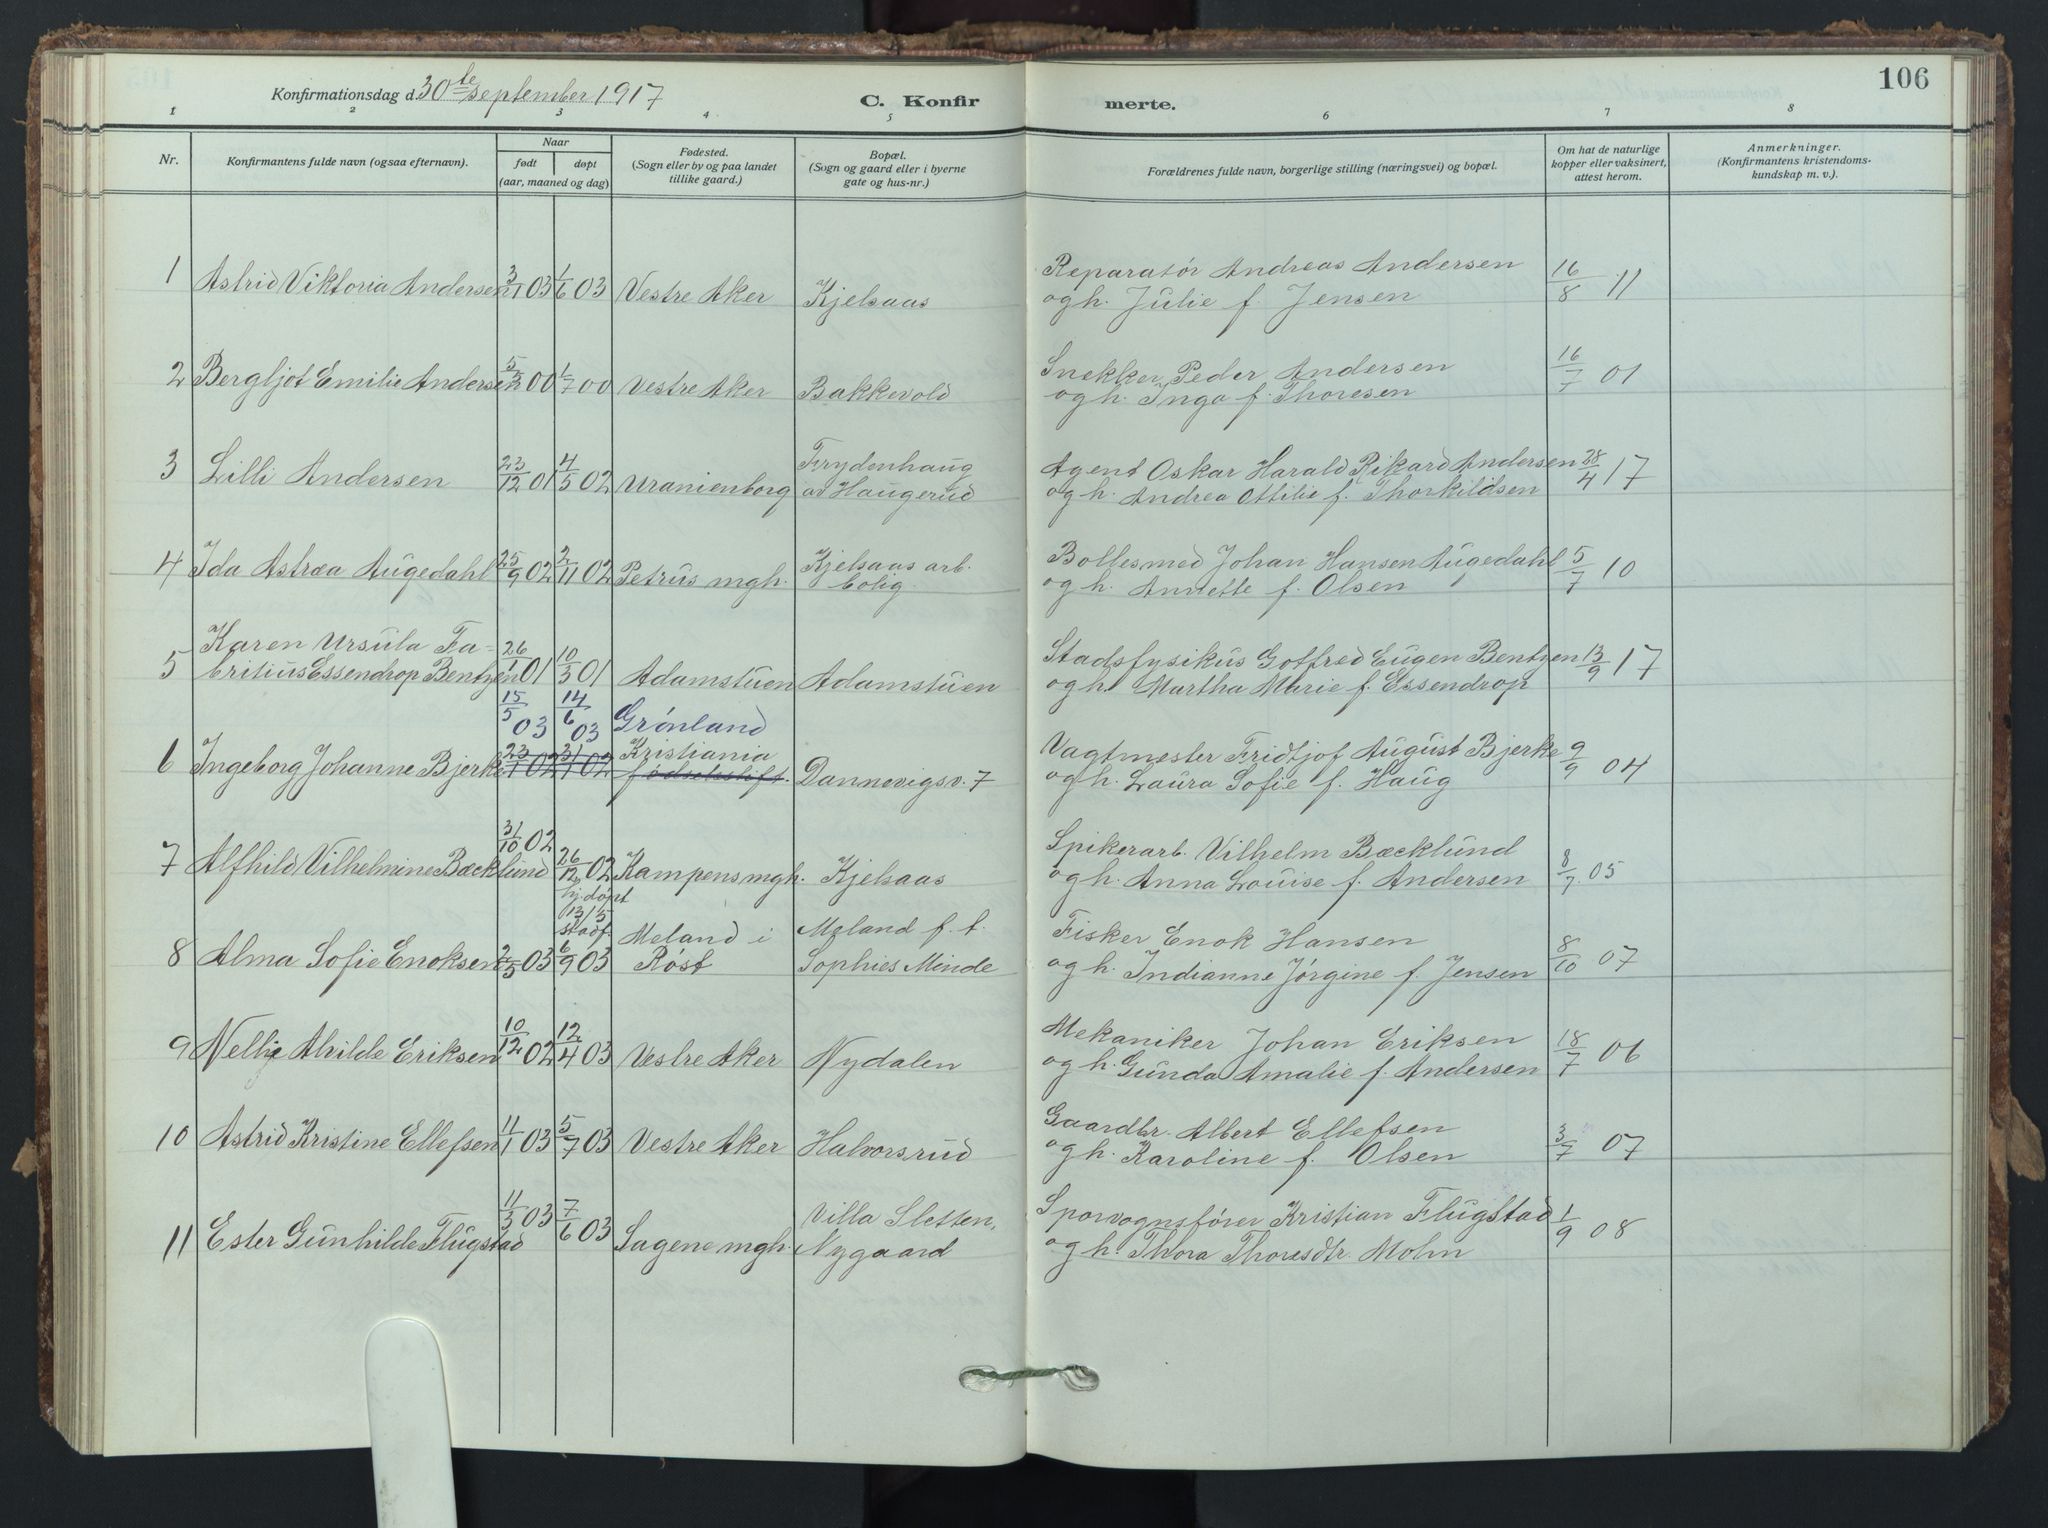 106
Konfirmationsdag d. 30te september 1917
C. Konfirmerte.
1 2 3 4 5 6 7 8
Nr. Konfirmantens fulde navn (ogsaa efternavn). Naar født døpt (aar, maaned og dag) Fødested. (Sogn eller by og paa landet tillike gaard.) Bopæl. (Sogn og gaard eller i byerne gate og hus-nr.) Forældrenes fulde navn, borgerlige stilling (næringsvei) og bopæl. Om hat de naturlige kopper eller vaksinert, attest herom. Anmerkninger. (Konfirmantens kristendomskundskap m. v.).
1 Astrid Viktoria Andersen 3/1 03 1/6 03 Vestre Aker Kjelsaas Reparatør Andreas Andersen 16/8 11
og h. Julie f. Jensen
2 Bergljot Emilie Andersen 5/2 00 1/7 00 Vestre Aker Bakkevold Snekker Peder Andersen 16/7 01
og h. Inga f. Thoresen
3 Lilli Andersen 23/12 01 4/5 02 Uranienborg Frydenhaug Agent Oskar Harald Rikard Andersen 28/4 17
av Haugerud og h. Andrea Ottilie f. Thorkildsen
4 Ida Astræa Augedahl 25/9 02 2/11 02 Petrus mgh. Kjelsaas arb. Boltesmed Johan Hansen Augedahl 5/7 10
bolig. og h. Annette f. Olsen
5 Karen Ursula Fa- 26/1 01 10/3 01 Adamstuen Adamstuen Stadsfysikus Gotfred Eugen Bentzen 13/9 17
britius Essendrop Bentzen og h. Martha Marie f. Essendrop
15/5 03 14/6 03 Grønland
6 Ingeborg Johanne Bjerke 23/1 02 31/1 02 Kristiania Dannevigsv. 7 Vagtmester Fridtjof August Bjerke 9/9 04
fødselsstift. og h. Laura Sofie f. Haug
7 Alfhild Vilhelmine Bæcklund 31/10 02 26/12 02 Kampens mgh. Kjelsaas Spikerarb. Vilhelm Bæcklund 8/7 05
og h. Anna Louise f. Andersen
hj. døpt
13/5
stadf.
8 Alma Sofie Enoksen 2/5 03 6/9 03 Meland i Meland f. t. Fisker Enok Hansen 8/10 07
Røst Sophies Minde og h. Indianne Jørgine f. Jensen
9 Nellie Alvilde Eriksen 10/12 02 12/4 03 Vestre Aker Nydalen Mekaniker Johan Eriksen 18/7 06
og h. Gunda Amalie f. Andersen
10 Astrid Kristine Ellefsen 11/1 03 5/7 03 Vestre Aker Halvorsrud Gaardbr. Albert Ellefsen 3/7 07
og h. Karoline f. Olsen
11 Ester Gunhilde Flugstad 11/3 03 7/6 03 Sagene mgh. Villa Sletten, Sporvognsfører Kristian Flugstad 1/9 08
Nygaard og h. Thora Thoresdtr. Mohn